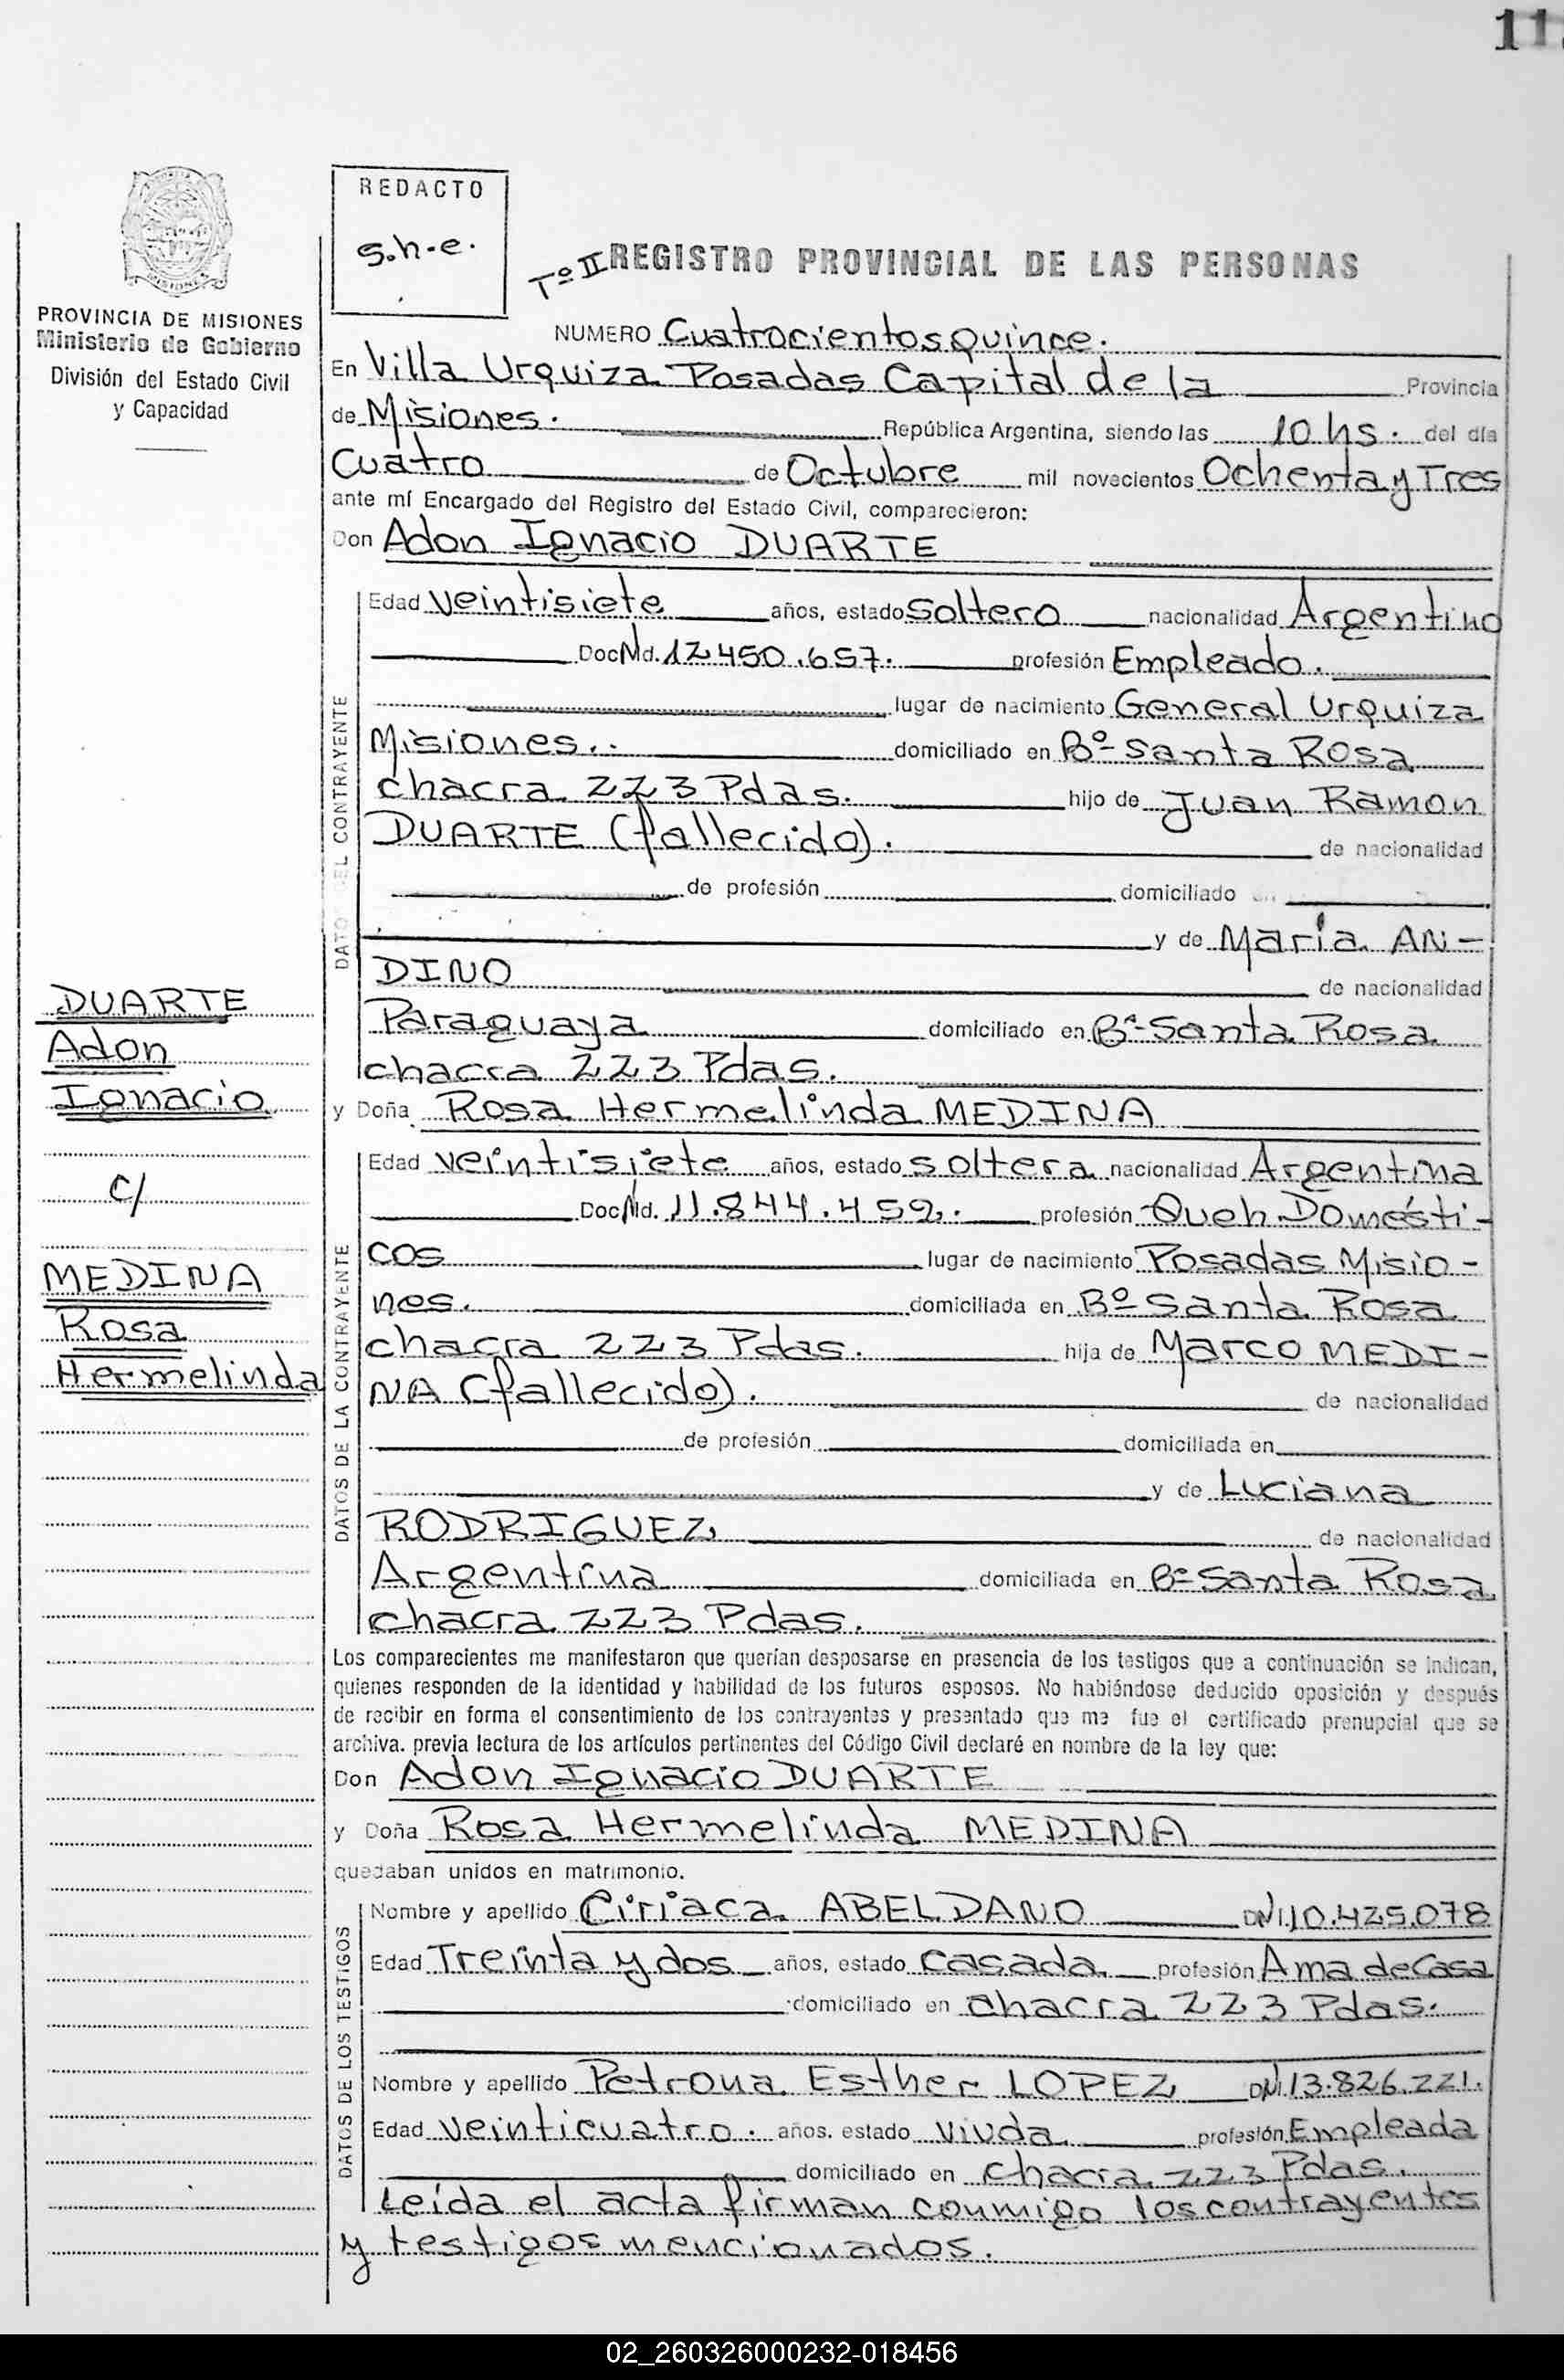 11
REDACTO
s.h-e.
Tº II REGISTRO PROVINCIAL DE LAS PERSONAS
PROVINCIA DE MISIONES
Ministerio de Gobierno
División del Estado Civil
y Capacidad
NUMERO Cuatrocientos Quince.
En Villa Urquiza Posadas Capital de la Provincia
de Misiones. República Argentina, siendo las 10 hs. del día
Cuatro de Octubre mil novecientos Ochenta y Tres
ante mí Encargado del Registro del Estado Civil, comparecieron:
Don Adon Ignacio DUARTE
DATO DEL CONTRAYENTE
Edad veintisiete años, estado Soltero nacionalidad Argentino
Doc Nd. 12.450.657. profesión Empleado.
lugar de nacimiento General Urquiza
Misiones. domiciliado en Bº- Santa Rosa
chacra 223 Pdas. hijo de Juan Ramon
DUARTE (fallecido). de nacionalidad
de profesión domiciliado en
y de María AN-
DINO de nacionalidad
Paraguaya domiciliado en Bº- Santa Rosa
chacra 223 Pdas.
DUARTE
Adon
Ignacio
c/
MEDINA
Rosa
Hermelinda
y Doña Rosa Hermelinda MEDINA
DATOS DE LA CONTRAYENTE
Edad veintisiete años, estado soltera nacionalidad Argentina
Doc Nd. 11.844.459. profesión Queh Domésti-
cos lugar de nacimiento Posadas Misio-
nes. domiciliada en Bº- Santa Rosa
chacra 223 Pdas. hija de Marco MEDI-
NA (fallecido). de nacionalidad
de profesión domiciliada en
y de Luciana
RODRIGUEZ de nacionalidad
Argentina domiciliada en Bº- Santa Rosa
chacra 223 Pdas.
Los comparecientes me manifestaron que querían desposarse en presencia de los testigos que a continuación se indican,
quienes responden de la identidad y habilidad de los futuros esposos. No habiéndose deducido oposición y después
de recibir en forma el consentimiento de los contrayentes y presentado que me fue el certificado prenupcial que se
archiva. previa lectura de los artículos pertinentes del Código Civil declaré en nombre de la ley que:
Don Adon Ignacio DUARTE
y Doña Rosa Hermelinda MEDINA
quedaban unidos en matrimonio.
DATOS DE LOS TESTIGOS
Nombre y apellido Ciriaca ABELDANO DNI. 10.425.078
Edad Treinta y dos años, estado Casada profesión Ama de Casa
domiciliado en chacra 223 Pdas.
Nombre y apellido Petrona Esther LOPEZ DNI. 13.826.221.
Edad veinticuatro. años. estado viuda profesión Empleada
domiciliado en chacra 223 Pdas.
Leída el acta firman conmigo los contrayentes
y testigos mencionados.
02_260326000232-018456